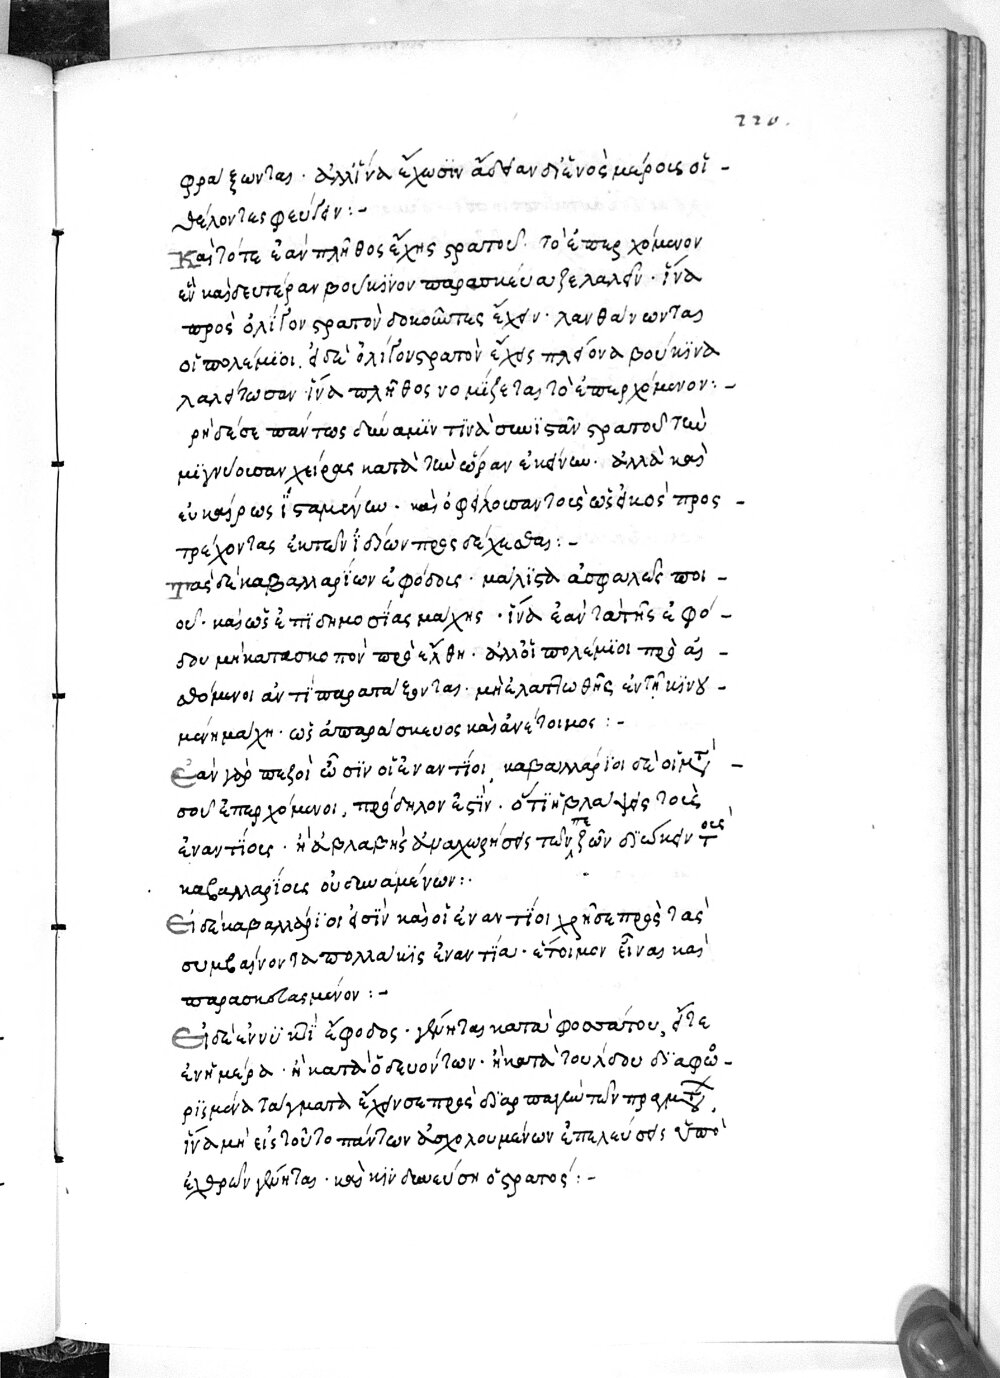 220.
φράξωνται· ἀλλ' ἵνα ἔχωσϊν ἄδειαν δι' ἑνὸς μέρους οἱ -
θέλοντες φεύγειν:-
Καὶ τότε ἐὰν πλῆθος ἔχῃς στρατοῦ· τὸ ἐπερχόμενον
ἓν καὶ δεύτερον βούκϊνον παρασκεύαζε λαλεῖν· ἵνα
πρὸς ὀλίγον στρατὸν δοκοῦντες ἔχειν· λανθάνωνται
οἱ πολέμϊοι. εἰ δὲ ὀλίγον στρατὸν ἔχεις πλείονα βούκϊνα
λαλείτωσαν· ἵνα πλῆθος νομΐζεται τὸ ἐπερχόμενον:-
χρὴ δέ σε πάντως δύναμϊν τϊνὰ συνϊστᾶν στρατοῦ τοῦ
μϊγνύουσαν χεῖρας κατὰ τὴν ὥραν ἐκείνην· ἀλλὰ καὶ
εὐκαίρως ἱσταμένην· καὶ ὀφείλουσαν τοὺς ὡς εἰκὸς προς -
τρέχοντας ἐκ τῶν ἰδίων προσδέχεσθαι:-
Τὰς δὲ καβαλλαρΐων ἐφόδους· μάλϊστα ἀσφαλεῖς ποι -
οῦ· καὶ ὡς ἐπϊ δημοσΐας μάχης· ἵνα ἐὰν τὰ τῆς ἐφό -
δου μὴ κατὰ σκοπὸν προέλθῃ· ἀλλ' οἱ πολέμϊοι προαις -
θόμενοι ἀντϊπαρατάξονται· μὴ ἐλαττωθῇς ἐν τῇ κϊνου -
μένῃ μάχῃ· ὡς ἀπαράσκευος καὶ ἀνέτοιμος:-
Ἐὰν γὰρ πεζοὶ ὦσϊν οἱ ἐναντΐοι, καβαλλάρϊοι δὲ οἱ μετά -
σου ἐπερχόμενοι, πρόδηλον ἐστΐν· ὅτϊ ἢ βλάψεις τοὺς
ἐναντΐους· ἢ ἀβλαβὴς ἀναχωρήσεις τῶν πεζῶν διώκειν τοὺς
καβαλλαρΐους οὐ δυναμένων:·
Εἰ δὲ καβαλλάρϊοι εἰσϊν καὶ οἱ ἐναντΐοι χρή σε πρὸς τὰ
συμβαίνοντα πολλάκϊς ἐναντΐα· ἕτοιμον εἶναι καὶ
παρασκευασμένον:-
Εἰ δὲ ἐν νυκτὶ ἔφοδος· γένηται κατὰ φοσσάτου, εἴτε
ἐν ἡμέρᾳ· ἢ κατὰ ὁδευόντων· ἢ κατὰ τούλδου διαφω -
ρισμένα τάγματα ἔχειν σε πρὸς διαρπαγὴν τῶν πραγμάτων,
ἵνα μὴ εἰς τοῦτο πάντων ἀσχολουμένων ἐπέλευσις ὑπὸ
ἐχθρῶν γένηται· καὶ κϊνδυνεύσῃ ὁ στρατός:-